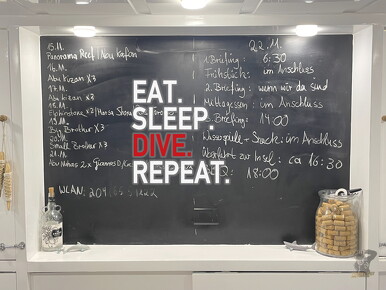 15.11.
Panorama Reef / Abu Kafan
16.11.
Abu Kizan x3
17.11.
Abu Kizan x3
18.11.
Elphinstone x2 / Marsa
19.11.
Big Brother x3
20.11.
Small Brother x3
21.11.
Abu Nuhas 2x
WLAN:
22.11.
1. Briefing: 6:30
Frühstück: im Anschluss
2. Briefing: wenn wir da sind
Mittagessen: im Anschluss
14:00
+ Snack: im Anschluss
Überfahrt zur Insel: ca 16:30
18:00
EAT.
SLEEP.
DIVE.
REPEAT.